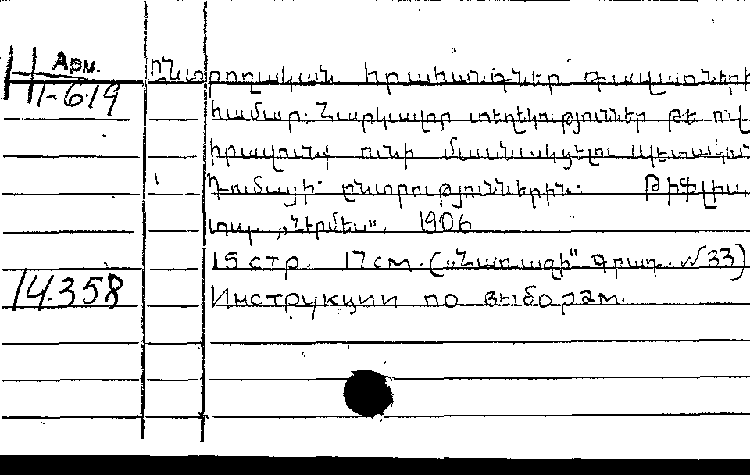 Арм.
1-619
Ընտրողական հրահանգներ գաւառների
համար: Հարկաւոր տեղեկութիւններ թե ով
իրաւունք ունի մասնակցելու պետական
Դումայի ընտրութիւններին: Թիֆլիս,
տպ. „Հերմես", 1906
15 стр. 17 см. („ " գրադ. №33)
14.358
Инструкции по выборам.